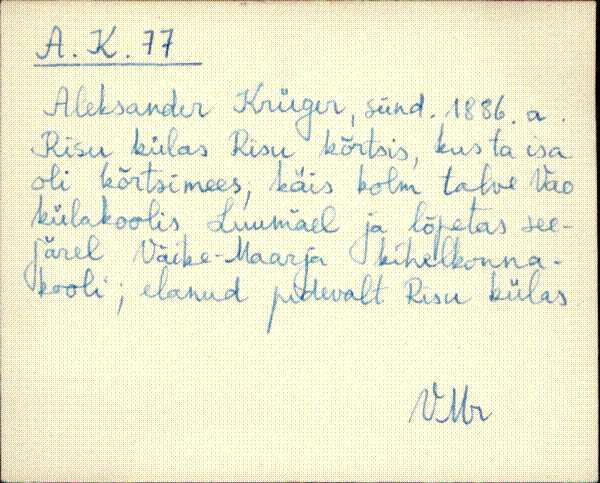 A. K. 77
Aleksander Krüger, sünd. 1886. a.
Risu külas Risu kõrtsis, kus ta isa
oli kõrtsimees, käis kolm talve Vao
külakoolis Luumäel ja lõpetas see-
järel Väike-Maarja kihelkonna-
kooli; elanud pidevalt Risu külas
VMr